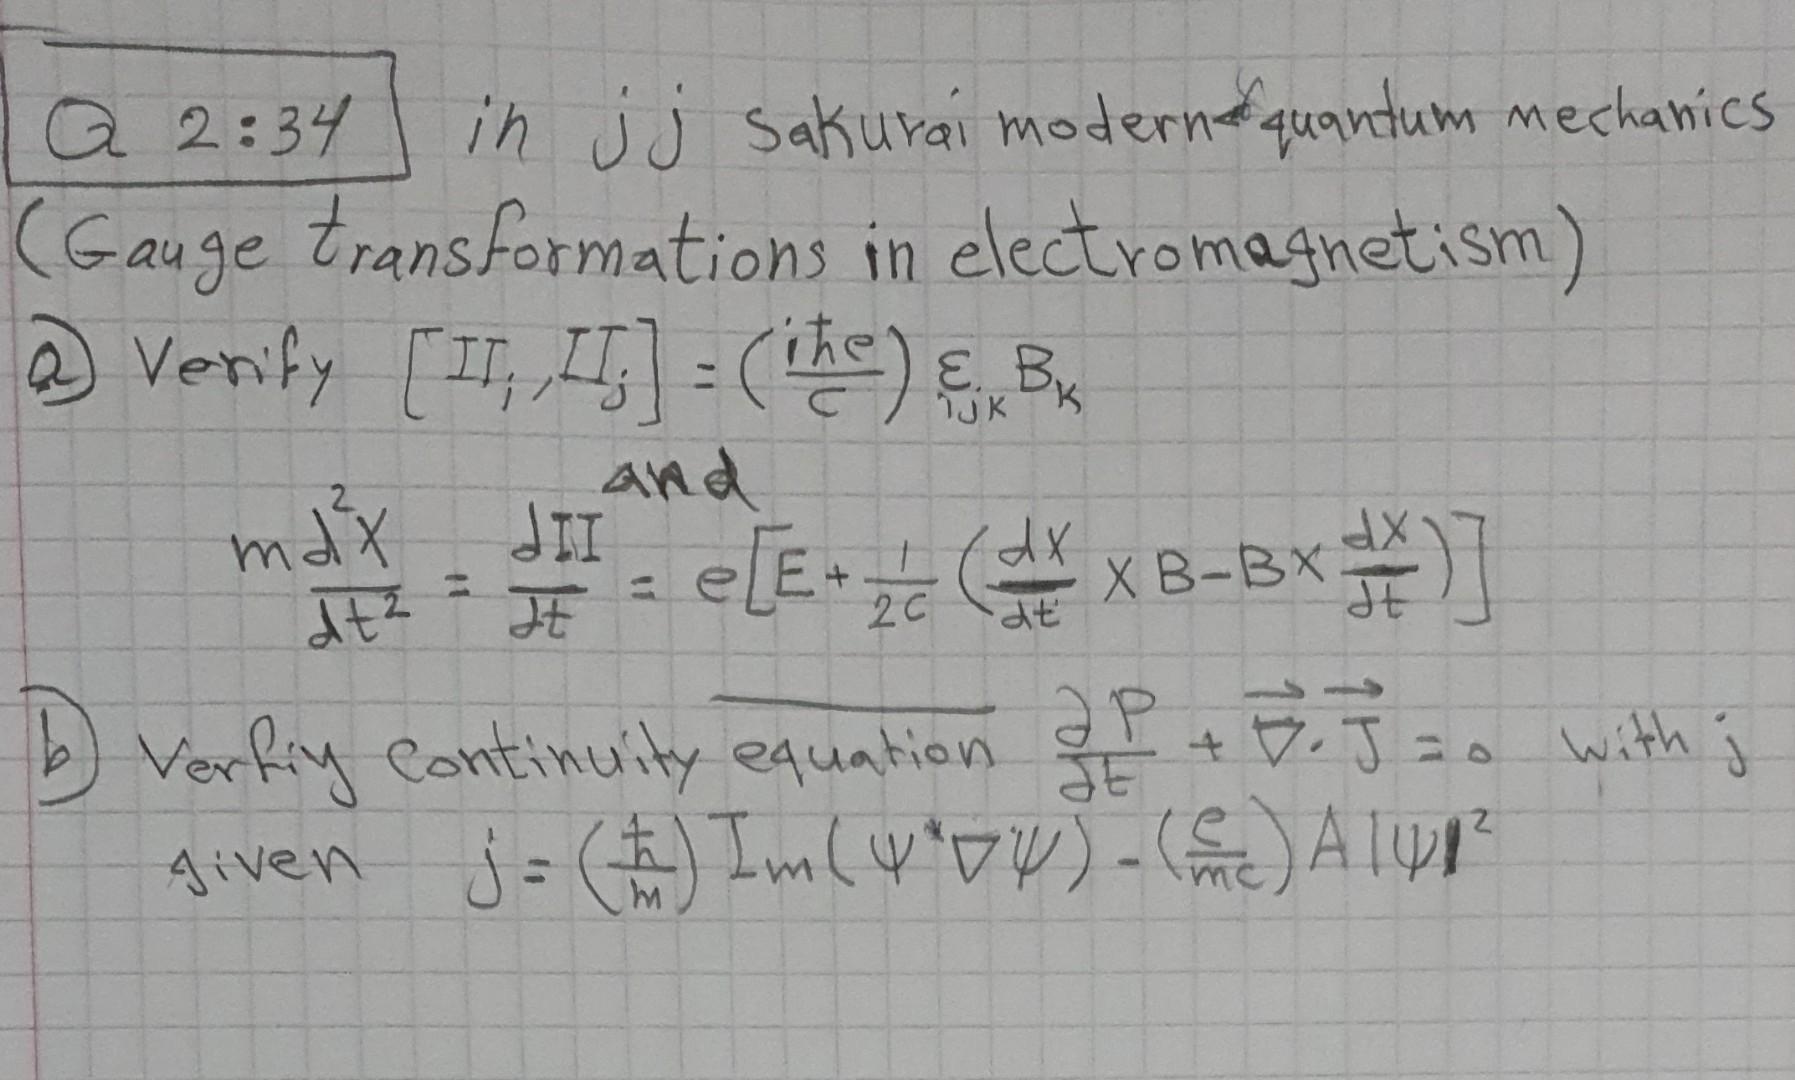 Q 2:34 in jj Sakurai modern quantum mechanics
(Gauge transformations in electromagnetism)
a) Verify [II_i, II_j] = (iħe/c) ε_ijk B_k
and
m d²x/dt² = dII/dt = e[E + 1/2c (dx/dt × B - B × dx/dt)]
b) Verfiy Continuity equation ∂P/∂t + ∇⃗·J⃗ = 0 with j
given j = (ħ/m) Im(ψ*∇ψ) - (e/mc) A|ψ|²